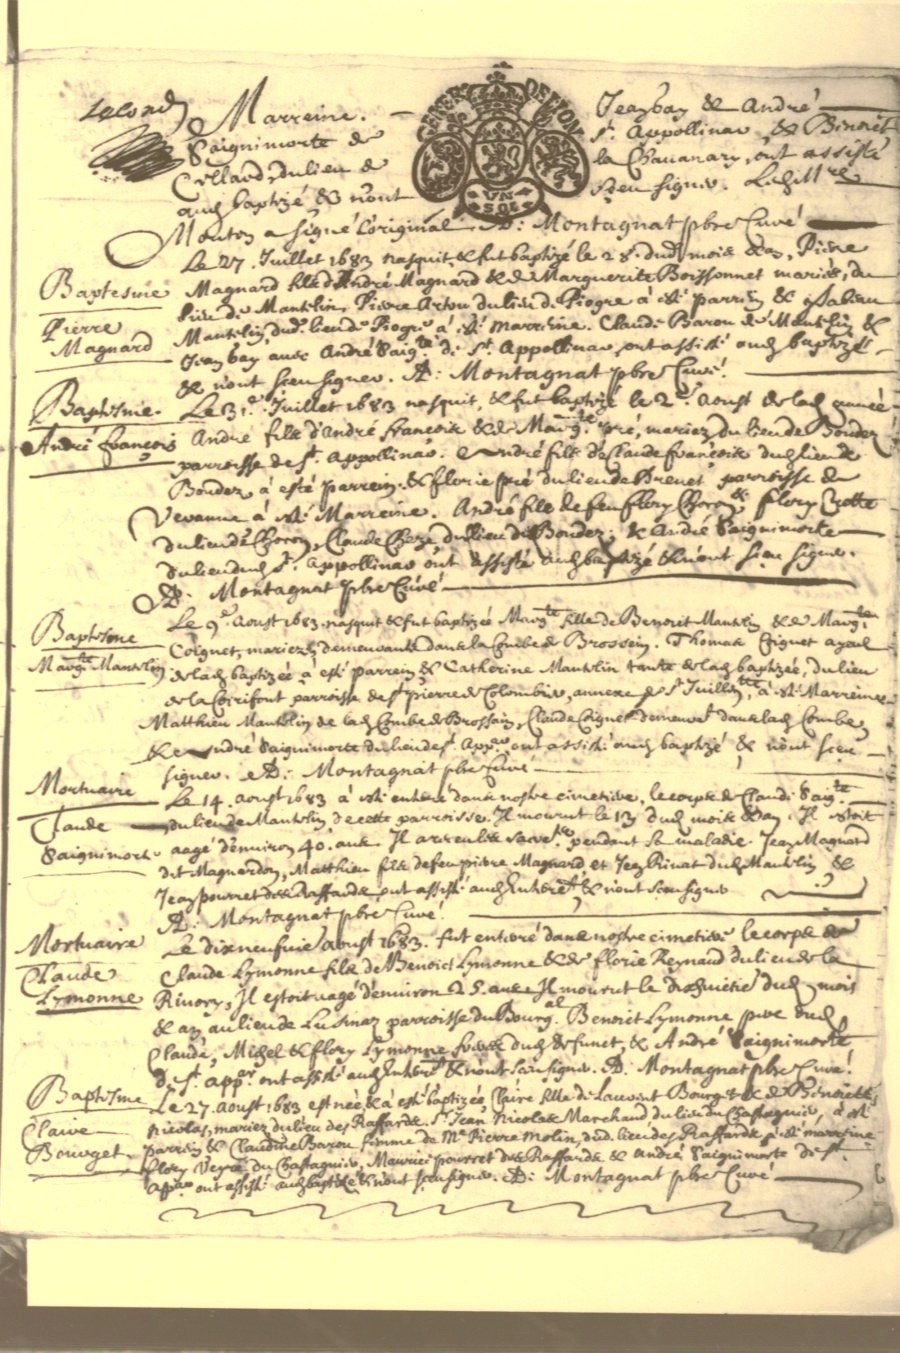 second
Marreine. Jean bay & André
Saignimorte de st. Appollinar, & Benoist
Collard, du lieu de la Chavanary, ont assisté
aud baptizé & n'ont sceu signer. Led Mre
GENER DE LYON
UN SOL
Mouton a signé l'original. A: Montagnat pbre Curé
Le 27. Juillet 1683 nasquit & fut baptizé le 28. dud mois & an, Pierre
Baptesme Magnard fils d'André Magnard & de Marguerite Boissonnet mariés, du
Pierre lieu de Mantelin. Pierre Artou du lieu de Piogre à esté parrein & Ysabeau
Magnard Mantelin dud. lieu de Piogre à esté marreine. Claude Baron de Mantelin &
Jean bay avec André Saigte. de St. Appollinar, ont assisté aud baptizé
& n'ont sceu signer. A: Montagnat pbre Curé.
Baptesme. Le 31e. Juillet 1683 nasquit, & fut baptizé le 2e. aoust de lad année
André françois André fils d'André françois & de Margte. pré, mariez, du lieu de Boudez
parroisse de St. Appollinar. André fils de Claude françois dud lieu de
Boudez à esté parrein & florie pré du lieu de Brenet, parroisse de
Vevanne à esté Marreine. André fils de feu flory Choron, & flory Crotte
du lieu de Choron, Claude Cheze du lieu de Boudez, & André Saignimorte
du lieu dud St. Appollinar ont assisté aud baptizé & n'ont sceu signer.
A: Montagnat pbre Curé
Baptesme Le 9e. Aoust 1683 nasquit & fut baptizée Margte fille de Benoist Mantelin & de Margte
Margte Mantelin Coignet, mariez, demeurants dans la Combe de Brossein. Thomas Coignet ayeul
de lad baptizée à esté parrein & Catherine Mantelin tante de lad baptizée, du lieu
de la Coirifont parroisse de St pierre de Colombier, annexe de St Juillin, à esté Marreine
Matthieu Mantelin de lad Combe de Brossein, Claude Coignet demeurt dans lad Combe,
& André Saignimorte du lieu de St. Appar ont assisté aud baptizé & n'ont sceu
signer. A: Montagnat pbre Curé
Mortuaire Le 14. aoust 1683 à esté enterré dans nostre cimetiere, le corps de Claude Saigte
Claude du lieu de Mantelin de cette parroisse. Il mourut le 13 dud mois & an. Il estoit
Saignimorte aagé d'environ 40. ans. Il a receu les sacrets pendant sa maladie. Jean Magnard
dit Magnardon, Matthieu fils de feu pierre Magnard et Jean Rivat dud Mantelin &
Jean pourret des Raffards, ont assisté aud Enterrt & n'ont sceu signer
A: Montagnat pbre Curé.
Mortuaire Le dixneufvie aoust 1683. fut enterré dans nostre cimetiere le corps de
Claude Claude Lymonne fils de Benoict Lymonne & de florie Reynaud du lieu de la
Lymonne Rivory, Il estoit aagé d'environ 25. ans. Il mourut le dixhuictie dud mois
& an au lieu de Lusinaz parroisse du Bourgal. Benoict Lymonne pere dud
Claude, Michel & flory Lymonne freres dud defunct, & André Saignimorte
de St. appar. ont assisté aud Enterrt & n'ont sceu signer. A: Montagnat pbre Curé.
Baptesme Le 27. aoust 1683 est née & à esté baptizée Claire fille de Laurent Bourget & de Benoiste
Claire Nicolas, mariez du lieu des Raffards. Sr. Jean Nicolas Marchand du lieu du Chastagnier, à esté
Bourget. parrein & Claudine Baron femme de Me Pierre Molin, dud. lieu des Raffards à esté marreine
flory Veyre du Chastagnier, Maurice pourret des Raffards & André Saignimorte de St.
Apar ont assisté aud baptizée & n'ont sceu signer. A: Montagnat pbre Curé